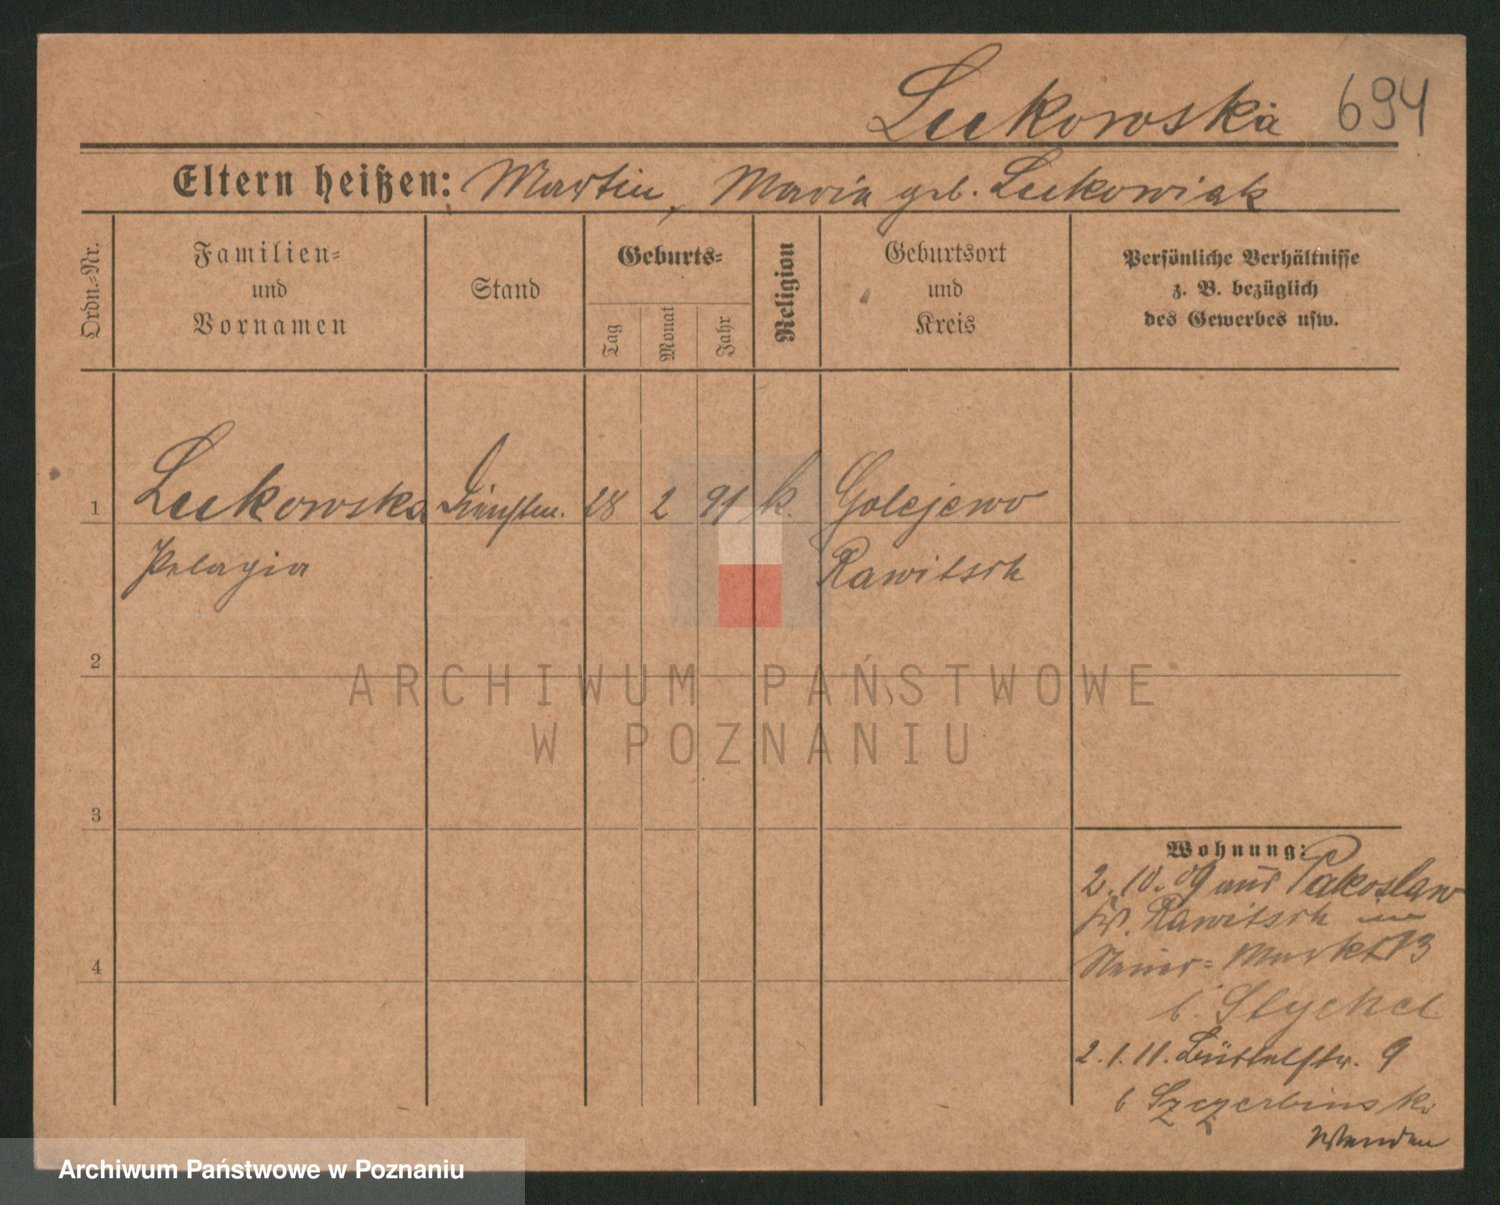 Lukowska 694
Eltern heißen: Martin, Maria geb. Lukowiak
Ordn.-Nr.
Familien-
und
Vornamen
Stand
Geburts-
Tag
Monat
Jahr
Religion
Geburtsort
und
Kreis
Persönliche Verhältnisse
z. B. bezüglich
des Gewerbes usw.
1 Lukowska 28 2 91 k. Golejewo
Pelagia Rawitsch
2
3
4
Wohnung:
2.10.09 aus Pakoslaw
Rawitsch
Neuer-Markt 13
b. Stychel
2.1.11. Büttelstr. 9
b Szczerbinski
Wenden
ARCHIWUM PAŃSTWOWE
W POZNANIU
Archiwum Państwowe w Poznaniu